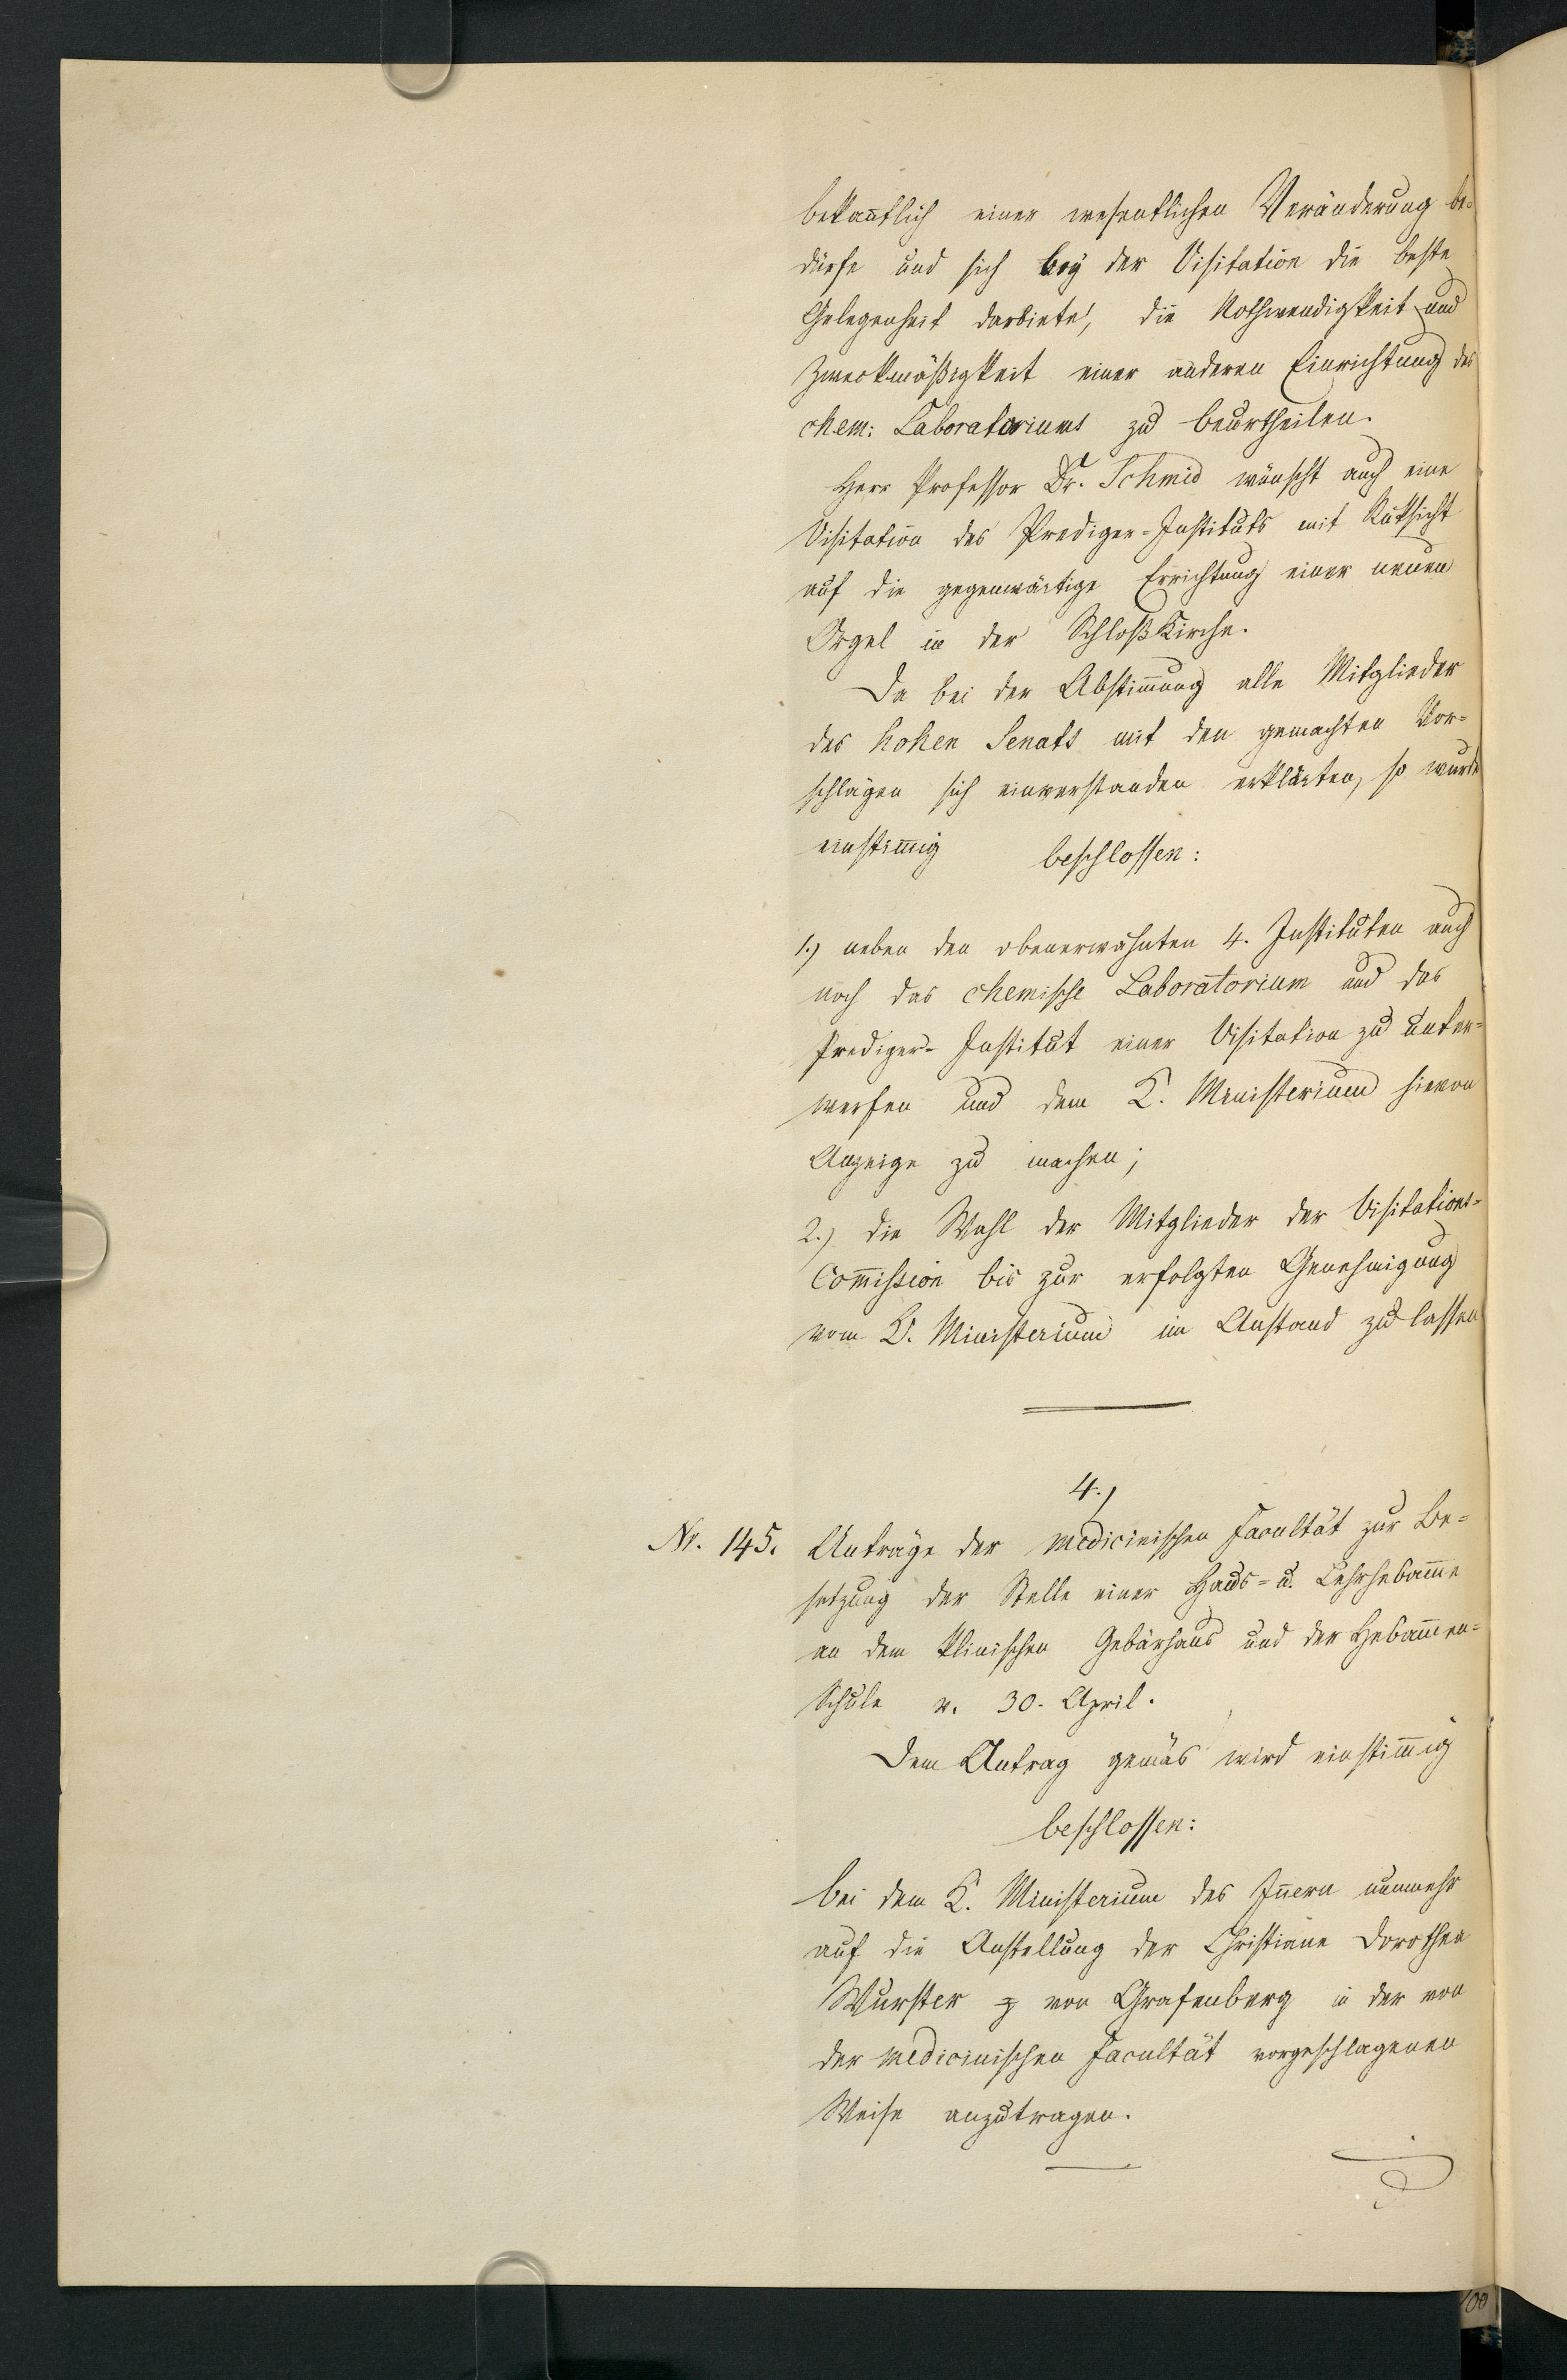 bekan̄tlich einer wesentlichen Veränderung be-
dürfe und sich bey der Visitation die beste
Gelegenheit darbiete, die Nothwendigkeit und
Zweckmäßigkeit einer anderen Einrichtung des
chem: Laboratoriums zu beurtheilen.
Herr Professor Dr. Schmid wünscht auch eine
Visitation des Prediger-Instituts mit Rüksicht
auf die gegenwärtige Errichtung einer neuen
Orgel in der Schloßkirche.
Da bei der Abstim̄ung alle Mitglieder
des hohen Senats mit den gemachten Vor-
schlägen sich einverstanden erklärten, so wurde
einstim̄ig beschlossen:
1.) neben den obenerwähnten 4. Instituten auch
noch das chemische Laboratorium und das
Prediger-Institut einer Visitation zu unter-
werfen und dem K. Ministerium hievon
Anzeige zu machen;
2.) die Wahl der Mitglieder der Visitations-
Com̄ission bis zur erfolgten Genehmigung
vom K. Ministerium im Anstand zu lassen
4.)
Nr. 145. Anträge der medicinischen Facultät zur Be-
setzung der Stelle einer Haus- u. Lehrhebam̄e
an dem klinischen Gebärhaus und der Hebam̄en-
Schule v. 30. April.
Dem Antrag gemäs wird einstim̄ig
beschlossen:
bei dem K. Ministerium des In̄ern nunmehr
auf die Anstellung der Christiane Dorothea
Wurster von Grafenberg in der von
der medicinischen Facultät vorgeschlagenen
Weise anzutragen.